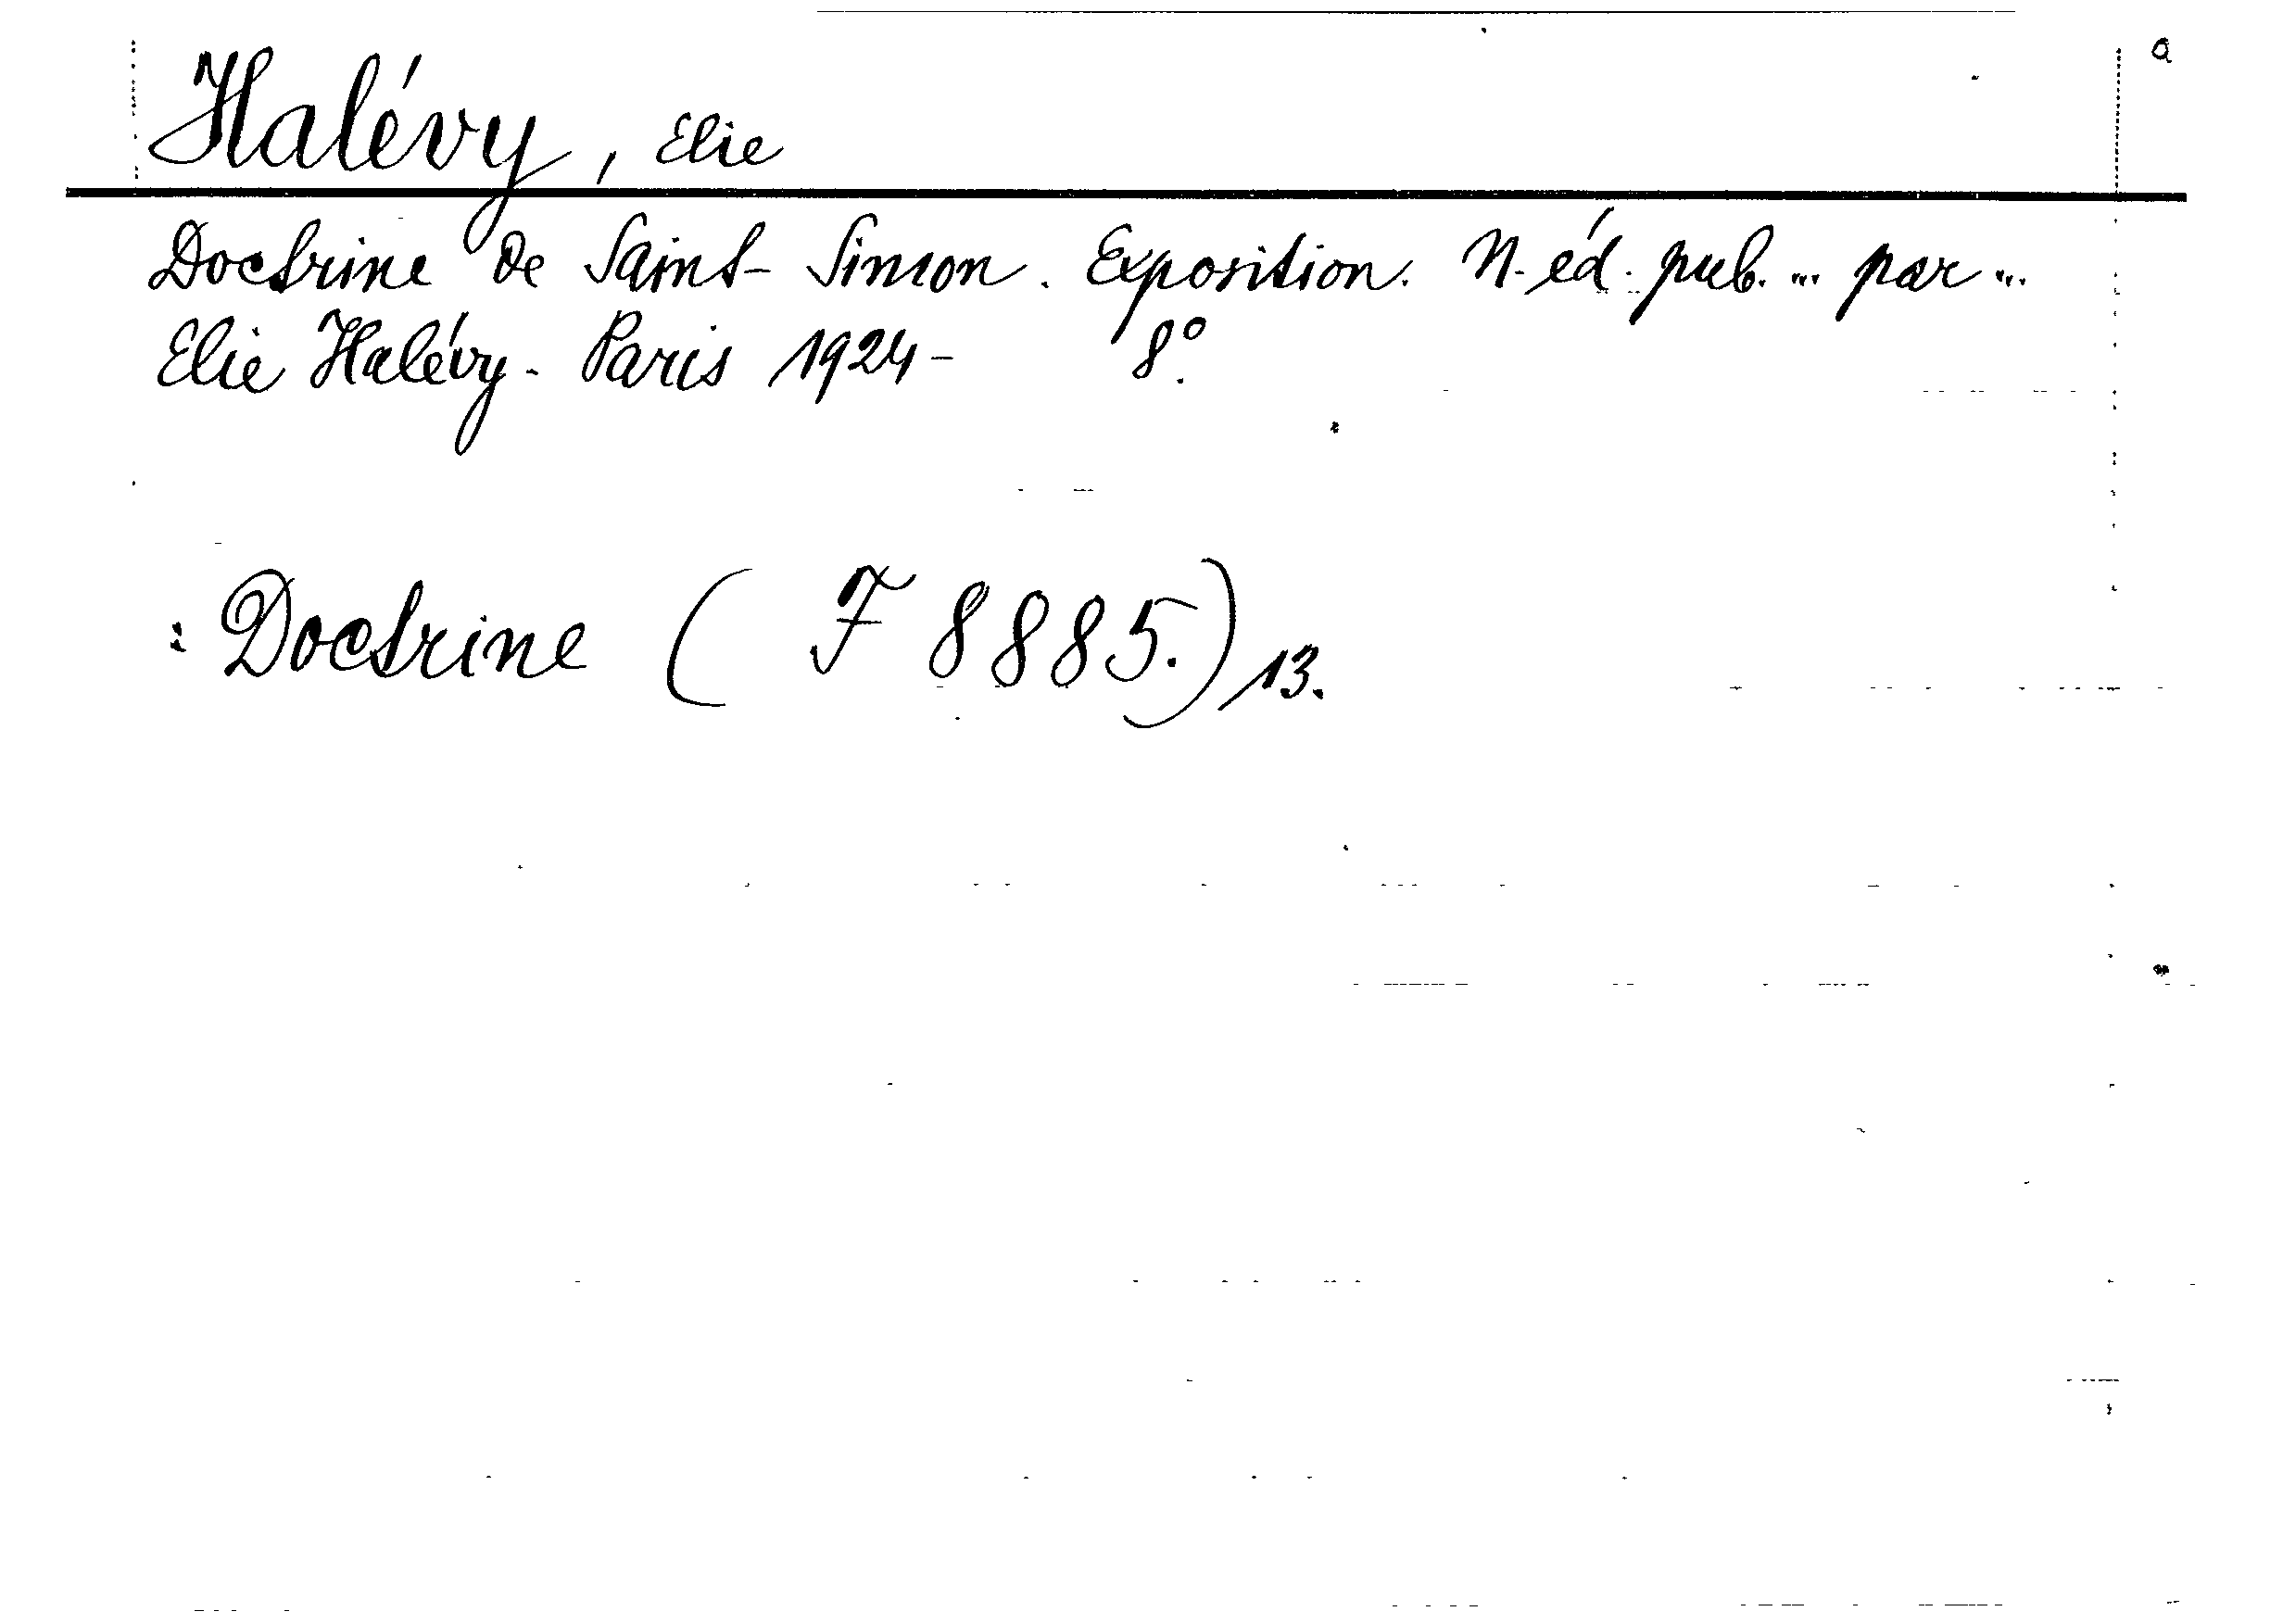 a
Halévy, Elie
Doctrine de Saint-Simon. Exposition. N. éd. pub. ... par ...
Elie Halévy - Paris 1924 - 8°.
: Doctrine ( F 8885.) 13.